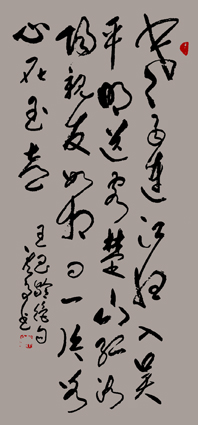 寒雨連江夜入吳
平明送客楚山孤洛
陽親友如相問一片冰
心在玉壺
王昌齡絕句